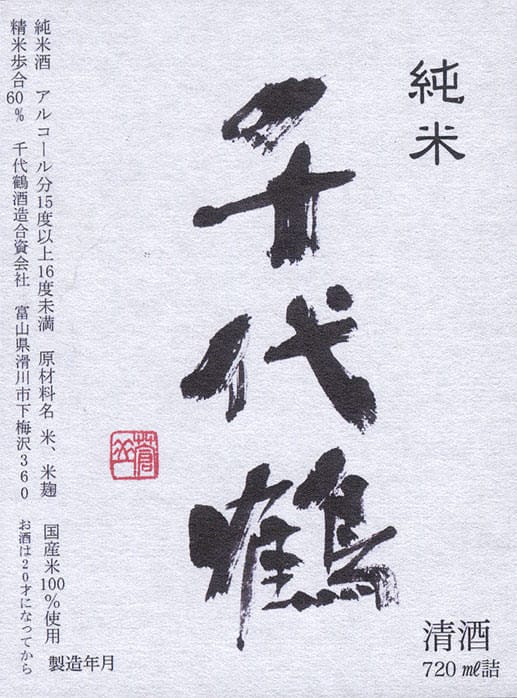 純米
千代鶴
清酒
720㎖詰
純米酒
精米歩合60%
アルコール分15度以上16度未満
千代鶴酒造合資会社
原材料名 米、米麹
富山県滑川市下梅沢360
国産米100%使用
お酒は20才になってから
製造年月